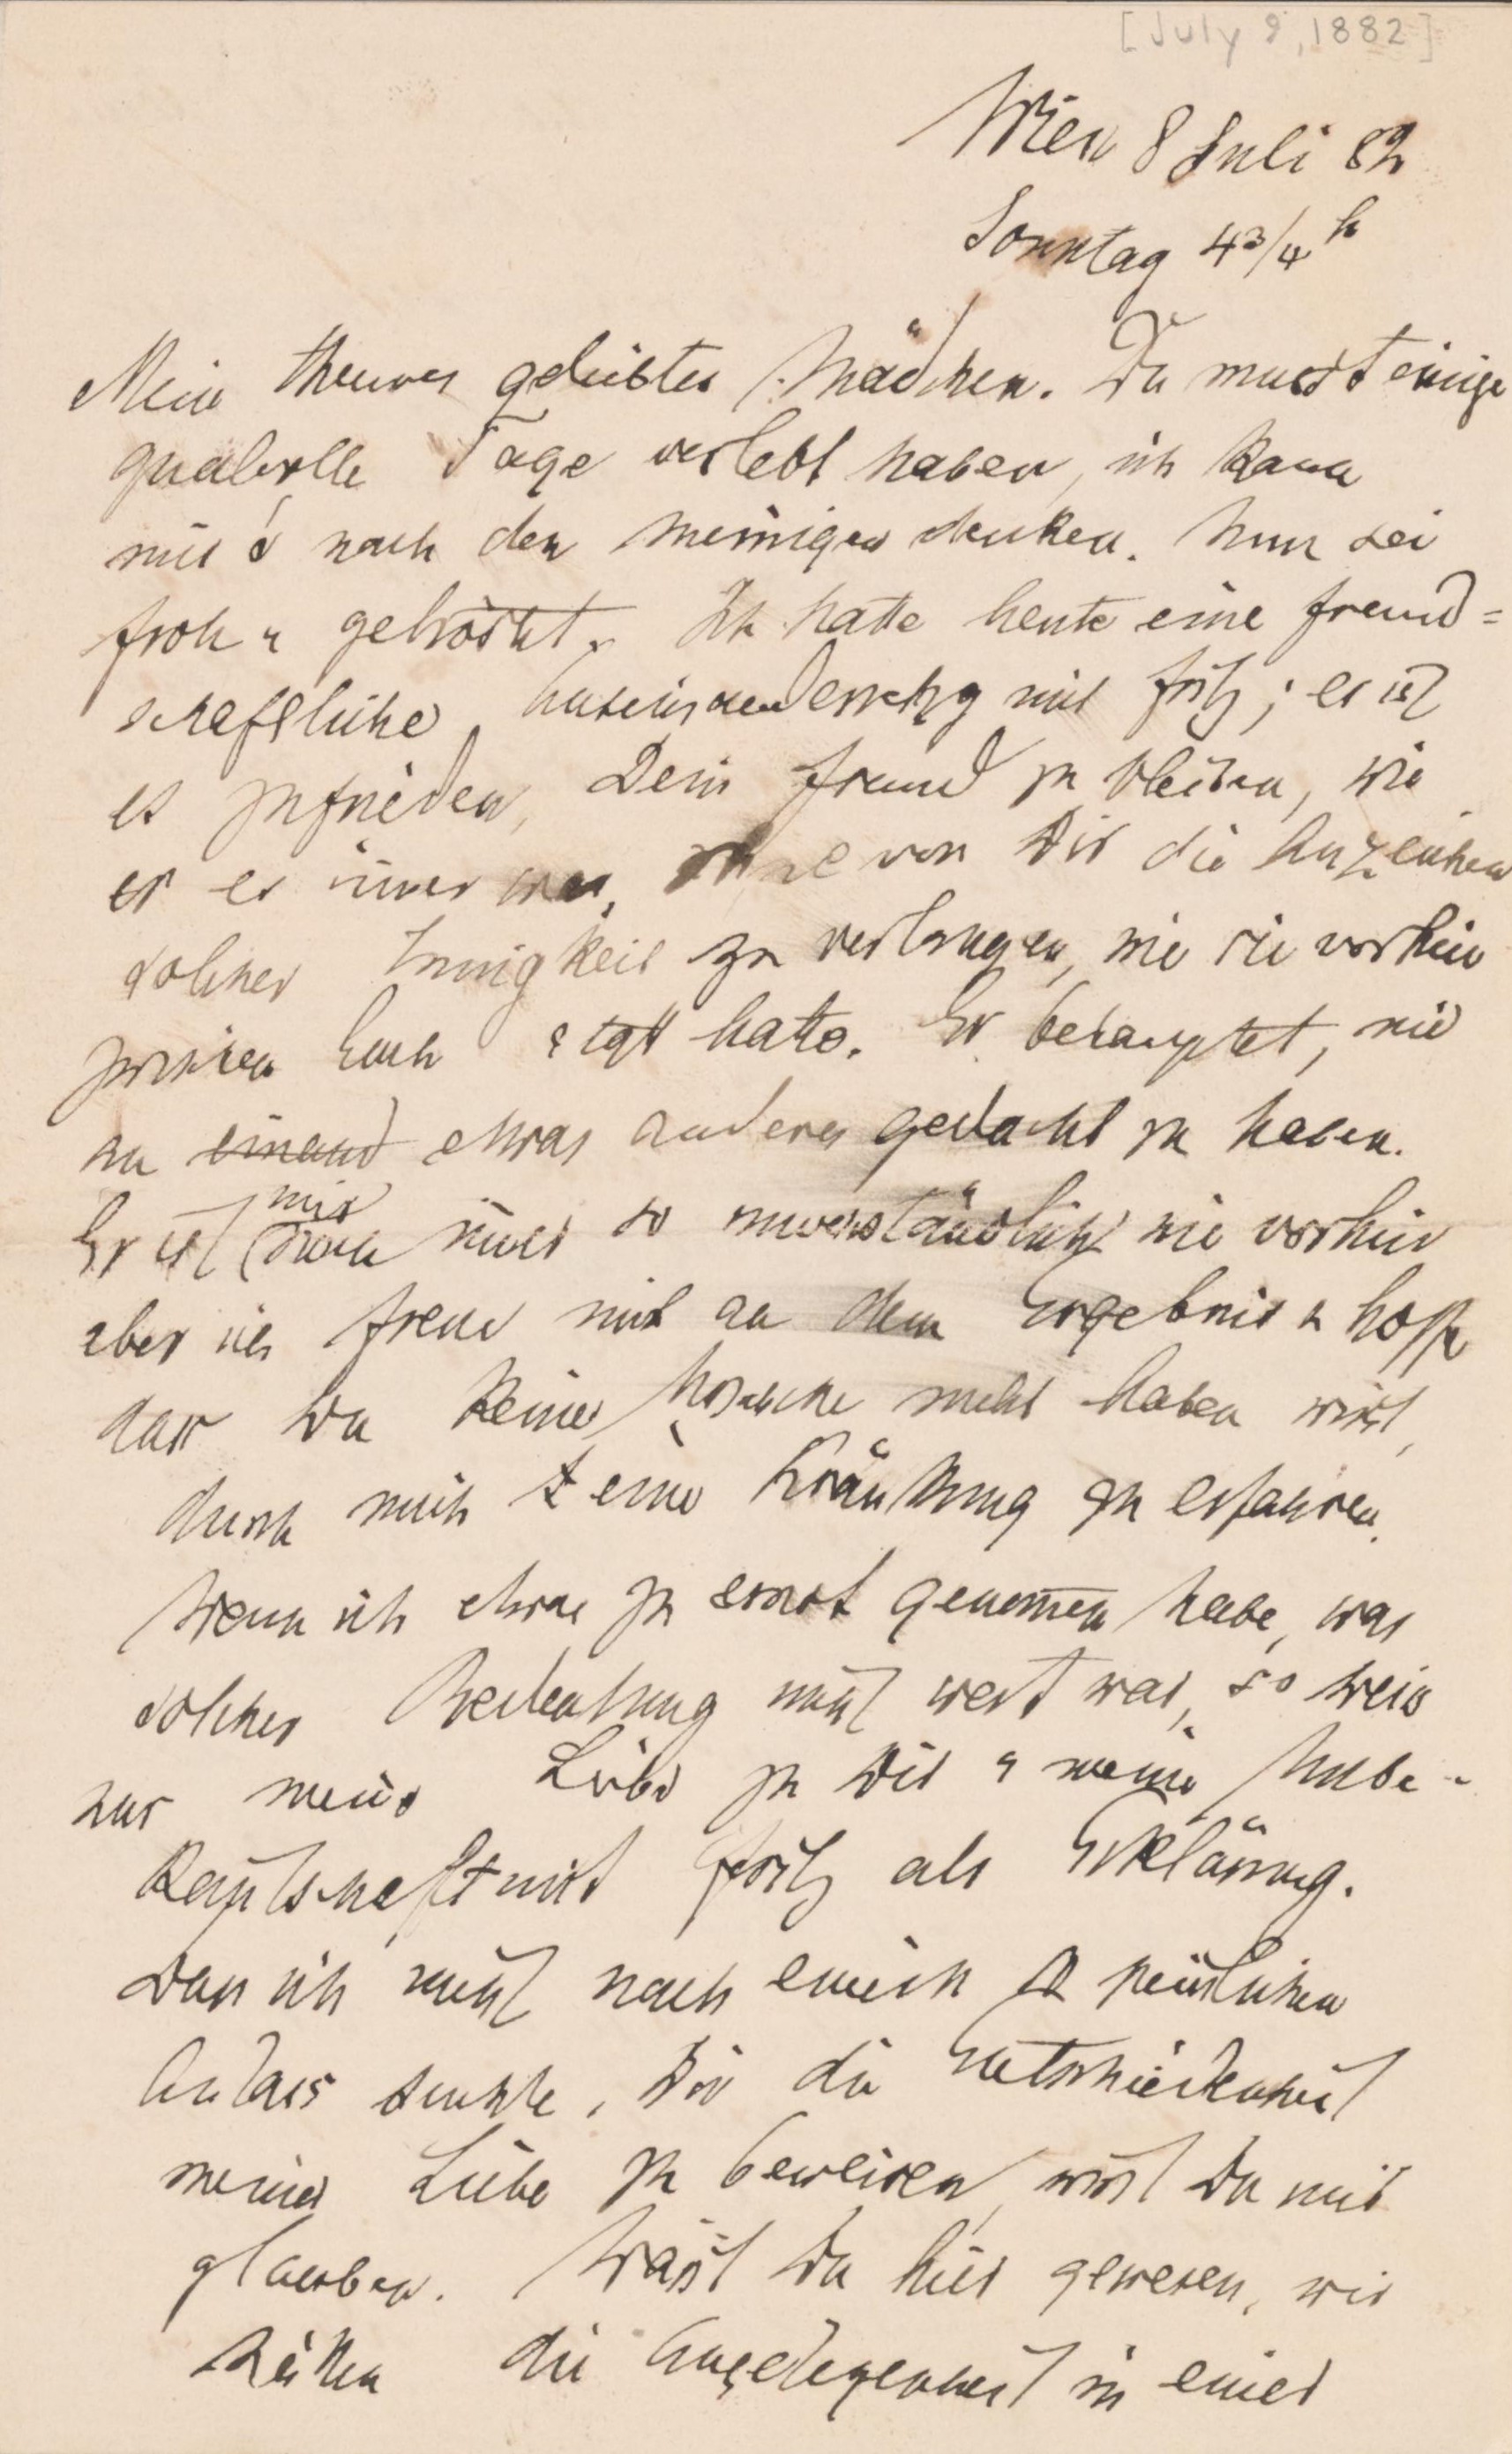 [July 9, 1882]
Wien 8 Juli 82
Sonntag 4 3/4 h
Mein theures geliebtes Mädchen. Du musst einige
qualvolle Tage verlebt haben, ich kann
mir's nach den meinigen denken. Nun sei
froh u getröstet. Ich hatte heute eine freund=
schaftliche Auseinandersetzg mit Fritz; er ist
es zufrieden, Dein Freund zu bleiben, wie
er es im̄er war, ohne von Dir die Anzeichen
solcher Innigkeit zu verlangen, wie sie vorhin
zwischen Euch statt hatte. Er behauptet, nie
an einand etwas anderes gedacht zu haben.
Er ist mir im̄er so unverständlich wie vorhin
aber ich freue mich an dem Ergebnis u hoffe
dass Du keine Ursache mehr haben wirst,
durch mich eine Kränkung zu erfahren.
Wenn ich etwas zu ernst genom̄en habe, was
solcher Bedeutung nicht wert war, so weiss
nur meine Liebe zu Dir u meine Unbe-
kan̄tschaft mit Fritz als Erklärung.
Dass ich nicht nach einem peinlichen
Anlass suchte, Dir die Entschiedenheit
meiner Liebe zu beweisen, wirst Du mir
glauben. Wärst Du hier gewesen, wir
hätten die Angelegenheit in einer